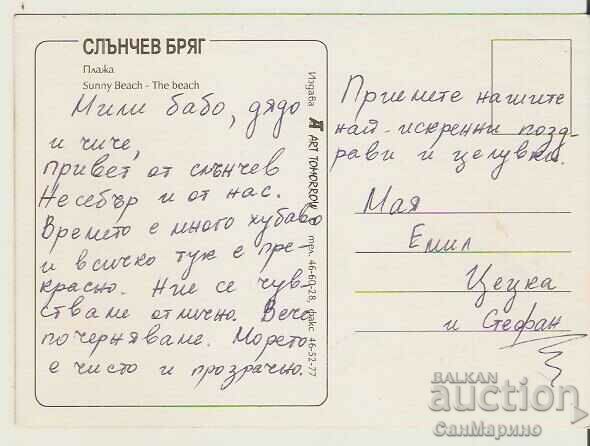 СЛЪНЧЕВ БРЯГ
Плажа
Sunny Beach - The beach
Мили бабо, дядо
и чиче,
привет от слънчев
Несебър и от нас.
Времето е много хубаво
и всичко тук е пре-
красно. Ние се чув-
стваме отлично. Вече
почерняваме. Морето
е чисто и прозрачно.
Издава ART TOMORROW тел. 46-60-28, факс 46-52-77
Приемете нашите
най-искренни позд-
рави и целувки.
Мая
Емил
Цецка
и Стефан
BALKAN
auction
СанМарино